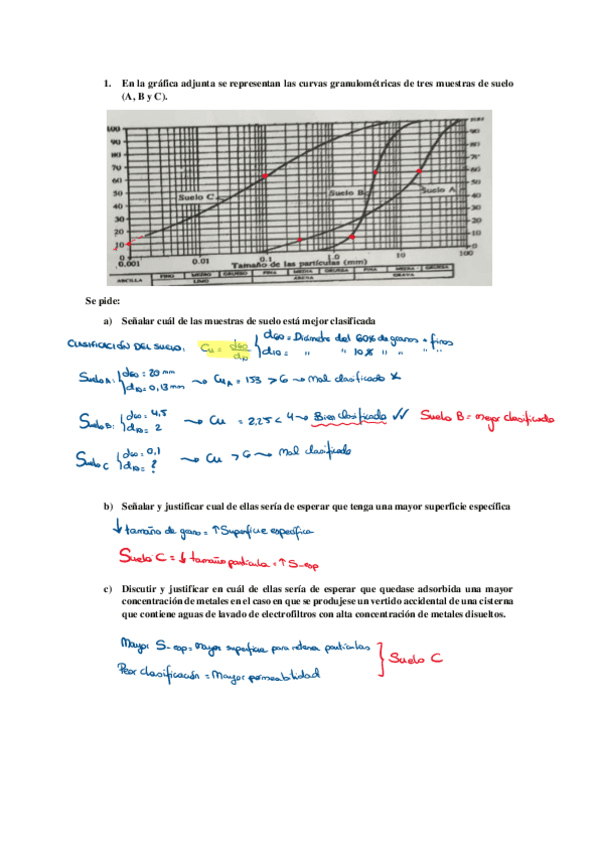 1. En la gráfica adjunta se representan las curvas granulométricas de tres muestras de suelo
(A, B y C).
100
90
80
70
60
50
40
30
20
10
0
90
80
70
60
50
40
30
20
10
0
Suelo C
Suelo B
Suelo A
0.001
0.01
0.1
1.0
10
100
Tamaño de las partículas (mm)
ARCILLA
FINO
MEDIO
GRUESO
FINA
MEDIA
GRUESA
FINA
MEDIA
GRUESA
LIMO
ARENA
GRAVA
Se pide:
a) Señalar cuál de las muestras de suelo está mejor clasificada
CLASIFICACIÓN DEL SUELO: Cu = d60/d10 { d60 = Diámetro del 60% de granos + finos
d10 = " " 10% " " " "
Suelo A: { d60 = 20 mm
d10 = 0,13 mm → CuA = 153 > 6 → Mal clasificado X
Suelo B: { d60 = 4,5
d10 = 2 → Cu = 2,25 < 4 → Bien clasificado ✓✓ Suelo B = mejor clasificado
Suelo C { d60 = 0,1
d10 = ? → Cu > 6 → Mal clasificado
b) Señalar y justificar cual de ellas sería de esperar que tenga una mayor superficie específica
↓ tamaño de grano = ↑ Superficie específica
Suelo C = ↓ tamaño partícula = ↑ S_esp
c) Discutir y justificar en cuál de ellas sería de esperar que quedase adsorbida una mayor
concentración de metales en el caso en que se produjese un vertido accidental de una cisterna
que contiene aguas de lavado de electrofiltros con alta concentración de metales disueltos.
Mayor S_esp = mayor superficie para retener partículas
Peor clasificación = Mayor permeabilidad
} Suelo C